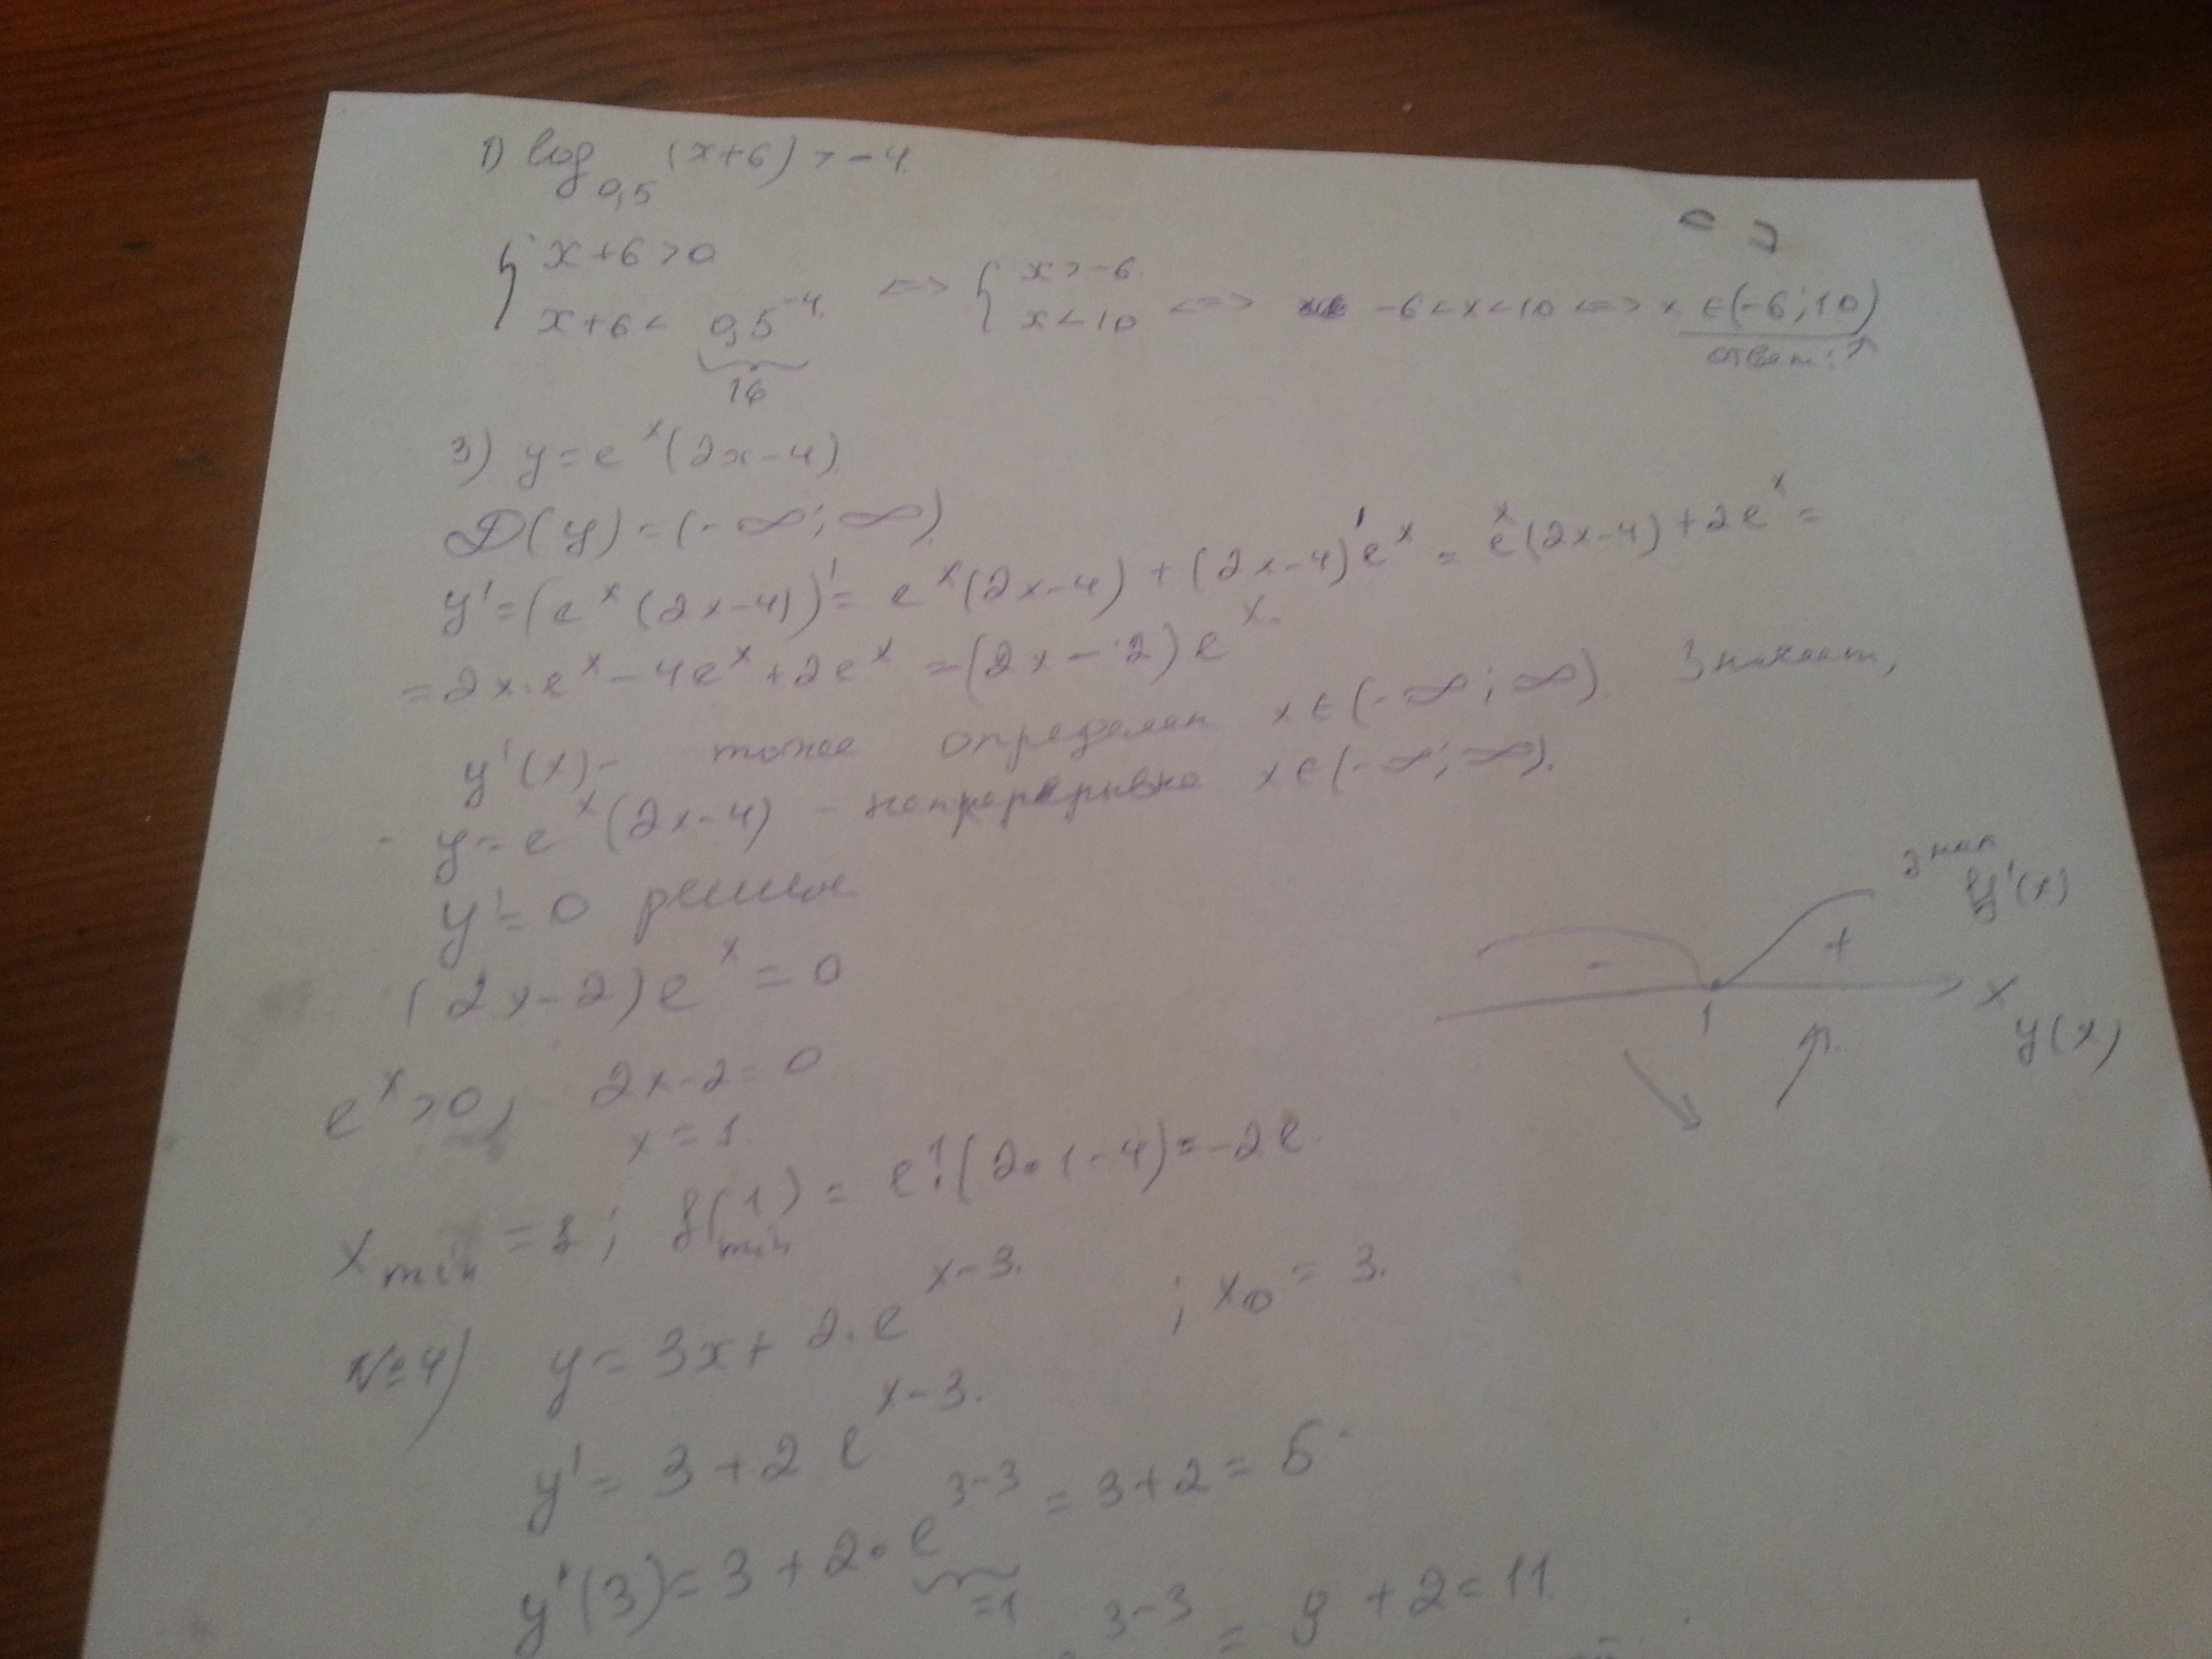 1) log₀,₅ (x+6) > -4.
{ x+6>0
x+6 < 0,5⁻⁴ <=> { x>-6. x<10 <=> -6<x<10 <=> x ∈(-6;10)
16
ответ: ↑
3) y=eˣ(2x-4).
D(y)=(-∞;∞).
y'=(eˣ(2x-4))'= eˣ(2x-4)+(2x-4)'eˣ = eˣ(2x-4)+2eˣ=
=2x·eˣ-4eˣ+2eˣ =(2x-2)eˣ.
y'(x)- тоже определен x∈(-∞;∞). Значит,
y=eˣ(2x-4) - непрерывна x∈(-∞;∞).
y'=0 решим
знак y'(x)
(2x-2)eˣ=0
- +
1 x
y(x)
eˣ>0, 2x-2=0
x=1.
x min = 1; f min (1) = e¹·(2·1-4)=-2e.
№4) y=3x+2·eˣ⁻³. ; x₀=3.
y'=3+2eˣ⁻³.
y'(3)=3+2·e³⁻³=3+2=5
=1
3-3 = 9+2=11